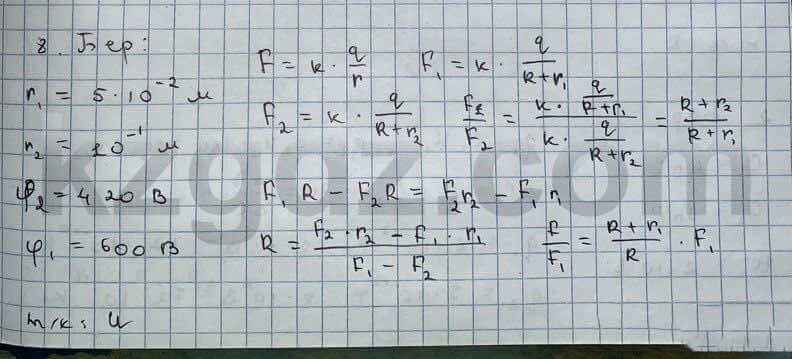 8. Бер:
r₁ = 5·10⁻² м
r₂ = 10⁻¹ м
φ₂ = 420 В
φ₁ = 600 В
т/к: U
F = k · q/r F₁ = k · q/(R+r₁)
F₂ = k · q/(R+r₂) F₁/F₂ = (k · q/(R+r₁))/(k · q/(R+r₂)) = (R+r₂)/(R+r₁)
F₁R − F₂R = F₂r₂ − F₁r₁
R = (F₂·r₂ − F₁·r₁)/(F₁ − F₂) F/F₁ = (R+r₁)/R · F₁
kzgdz.com